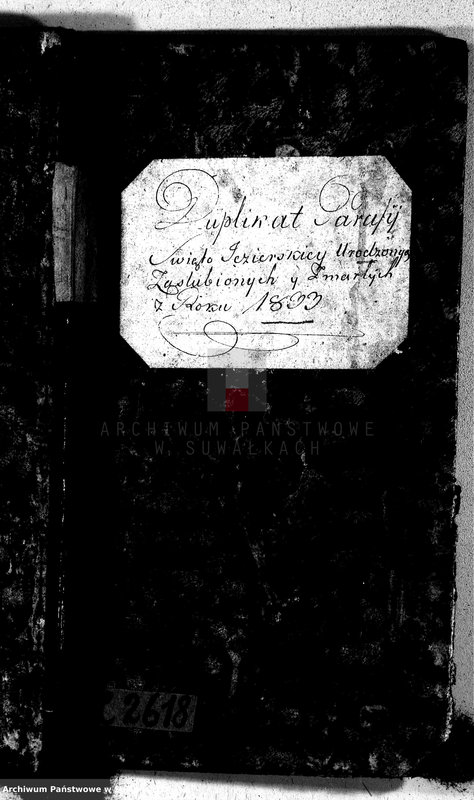 Duplikat Parafij
Święto Jezierskiey Urodzonych
Zaślubionych y Zmarłych
z Roku 1833
ARCHIWUM PAŃSTWOWE
W SUWAŁKACH
2618
Archiwum Państwowe w